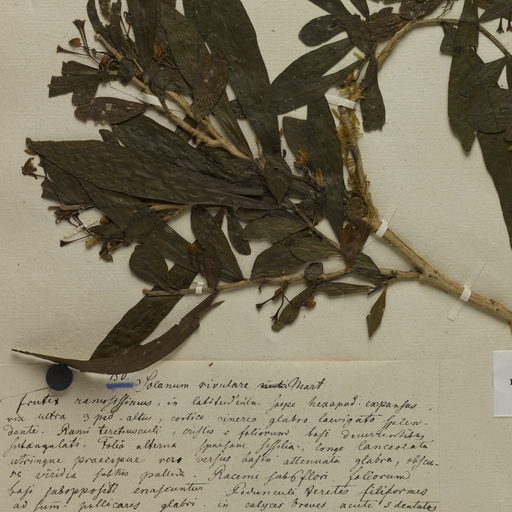 130.
Solanum rivulare Mart
frutex ramosissimus, in latitudinem saepe hexapod. expansus,
vix ultra 3 ped. altus, cortice cinereo glabro laevigato splen-
denti. Rami teretiusculi, cristis e foliorum basi decurrentibus
subangulati. Folia alterna sparsa sessilia, longe lanceolata
utrinque praecipue vero versus basin attenuata glabra, obscu-
re viridia subtus pallida. Racemi sub 6 flori foliorum
basi suboppositi enascuntur Pedunculi teretes filiformes
ad sum pollicares glabri in calyces breves acute 5 dentatos